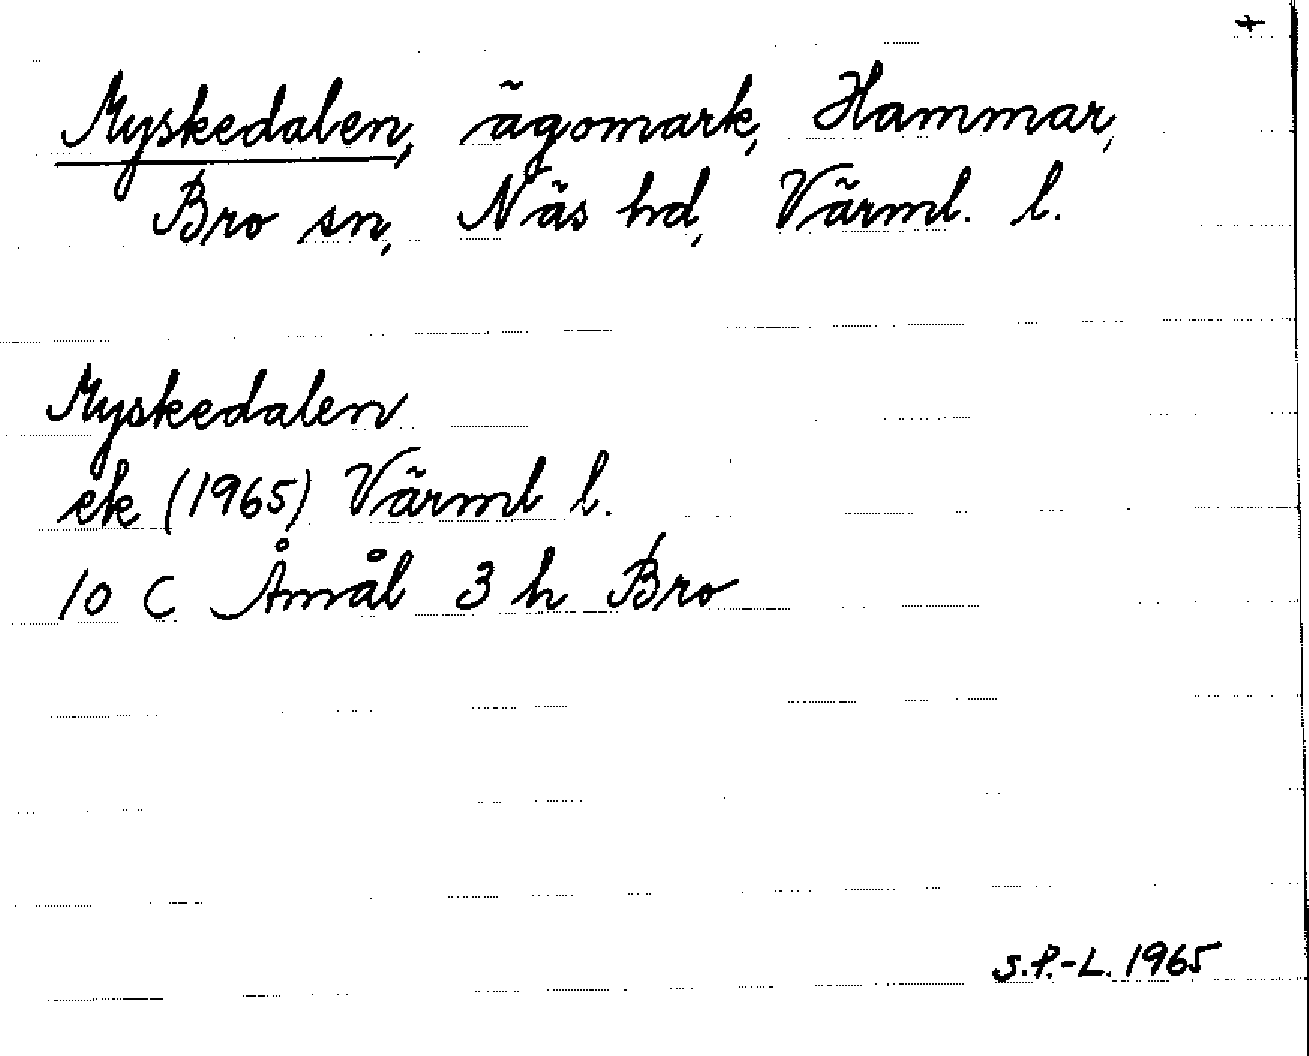 +
Myskedalen, ägomark, Hammar,
Bro sn, Näs hd, Värml. l.
Myskedalen
ek (1965) Värml l.
10 C Åmål 3 h Bro
S.P.-L. 1965